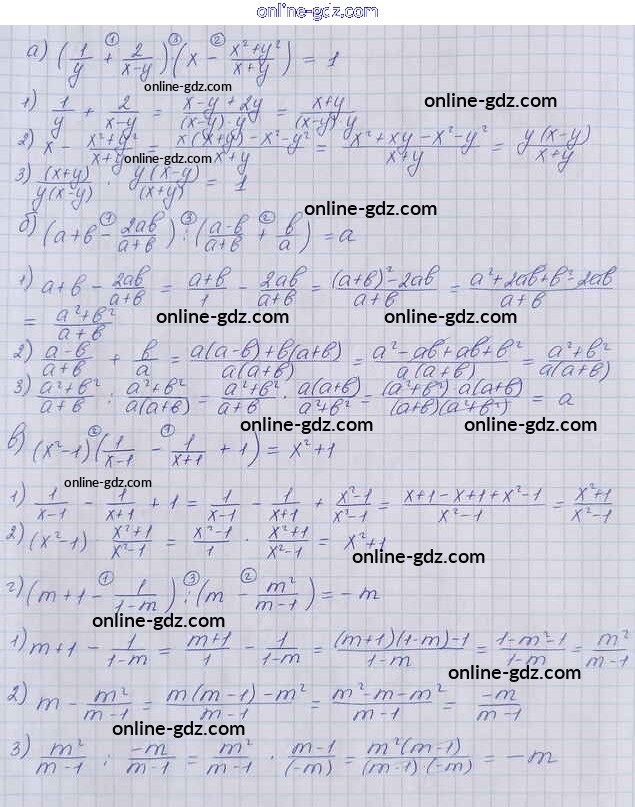 online-gdz.com
а) (1/y + 2/(x-y)) · (x - (x²+y²)/(x+y)) = 1
① ③ ②
online-gdz.com
1) 1/y + 2/(x-y) = (x-y+2y)/((x-y)·y) = (x+y)/((x-y)·y)
online-gdz.com
2) x - (x²+y²)/(x+y) = (x(x+y)-x²-y²)/(x+y) = (x²+xy-x²-y²)/(x+y) = y(x-y)/(x+y)
online-gdz.com
3) (x+y)/(y(x-y)) · y(x-y)/(x+y) = 1
online-gdz.com
б) (a+b - 2ab/(a+b)) : ((a-b)/(a+b) + b/a) = a
① ③ ②
1) a+b - 2ab/(a+b) = (a+b)/1 - 2ab/(a+b) = ((a+b)²-2ab)/(a+b) = (a²+2ab+b²-2ab)/(a+b)
= (a²+b²)/(a+b)
online-gdz.com online-gdz.com
2) (a-b)/(a+b) + b/a = (a(a-b)+b(a+b))/(a(a+b)) = (a²-ab+ab+b²)/(a(a+b)) = (a²+b²)/(a(a+b))
3) (a²+b²)/(a+b) : (a²+b²)/(a(a+b)) = (a²+b²)/(a+b) · a(a+b)/(a²+b²) = (a²+b²)·a(a+b)/((a+b)(a²+b²)) = a
online-gdz.com online-gdz.com
в) (x²-1)(1/(x-1) - 1/(x+1) + 1) = x²+1
② ①
online-gdz.com
1) 1/(x-1) - 1/(x+1) + 1 = 1/(x-1) - 1/(x+1) + (x²-1)/(x²-1) = (x+1-x+1+x²-1)/(x²-1) = (x²+1)/(x²-1)
2) (x²-1) · (x²+1)/(x²-1) = (x²-1)/1 · (x²+1)/(x²-1) = x²+1
online-gdz.com
г) (m+1 - 1/(1-m)) : (m - m²/(m-1)) = -m
① ③ ②
online-gdz.com
1) m+1 - 1/(1-m) = (m+1)/1 - 1/(1-m) = ((m+1)(1-m)-1)/(1-m) = (1-m²-1)/(1-m) = m²/(m-1)
online-gdz.com
2) m - m²/(m-1) = (m(m-1)-m²)/(m-1) = (m²-m-m²)/(m-1) = -m/(m-1)
online-gdz.com online-gdz.com
3) m²/(m-1) : -m/(m-1) = m²/(m-1) · (m-1)/(-m) = m²(m-1)/((m-1)·(-m)) = -m
online-gdz.com